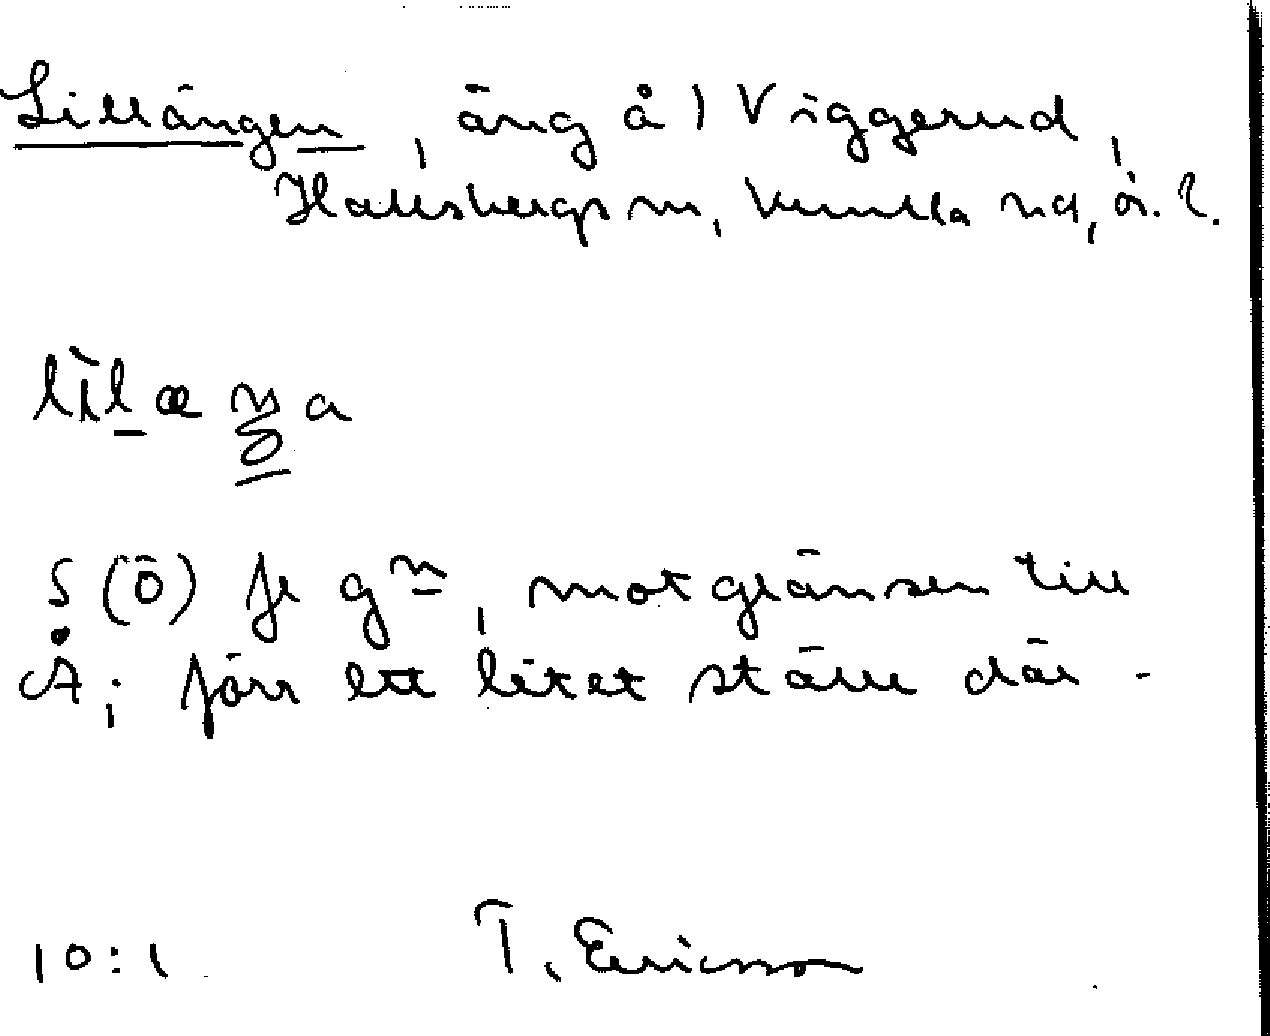 Lillängen, äng å 1 Viggerud,
Hallsbergs sn, Kumla hd, ör. l.
S (Ö) fr gn, mot gränsen till
Å; förr ett litet ställe där -
10:1 T. Ericsson